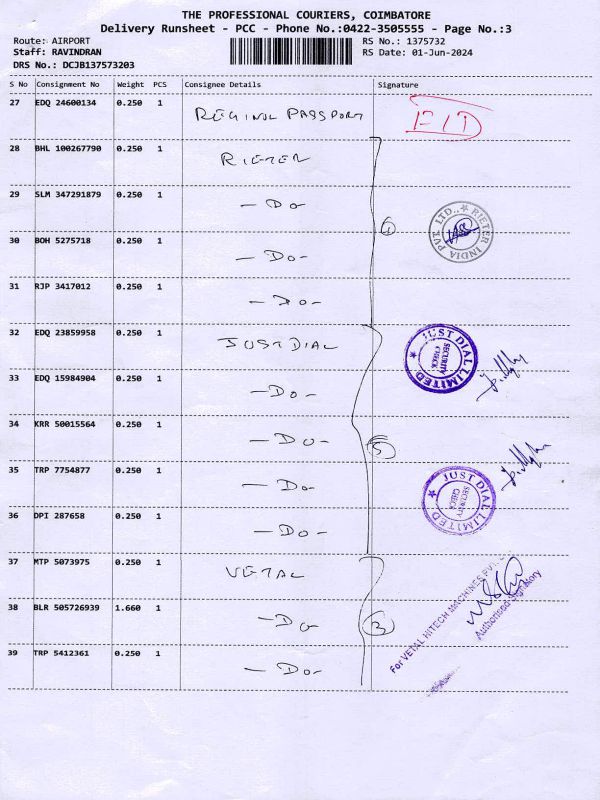 THE PROFESSIONAL COURIERS, COIMBATORE
Delivery Runsheet - PCC - Phone No.:0422-3505555 - Page No.:3
Route: AIRPORT RS No.: 1375732
Staff: RAVINDRAN RS Date: 01-Jun-2024
DRS No.: DCJB137573203
S No Consignment No Weight PCS Consignee Details Signature
27 EDQ 24600134 0.250 1 REGINOL PASSPORT
28 BHL 100267790 0.250 1 RIETER
29 SLM 347291879 0.250 1 - Do - RIETER INDIA PVT. LTD.,
30 BOH 5275718 0.250 1 - Do -
31 RJP 3417012 0.250 1 - Do -
32 EDQ 23859958 0.250 1 JUSTDIAL JUST DIAL LIMITED SECURITY CHECK
33 EDQ 15984904 0.250 1 - Do -
34 KRR 50015564 0.250 1 - Do - 5
35 TRP 7754877 0.250 1 - Do - JUST DIAL LIMITED SECURITY CHECK
36 DPI 287658 0.250 1 - Do -
37 MTP 5073975 0.250 1 VETAL
38 BLR 505726939 1.660 1 - Do - 3 For VETAL HITECH MACHINES PVT. Authorised Signatory
39 TRP 5412361 0.250 1 - Do -